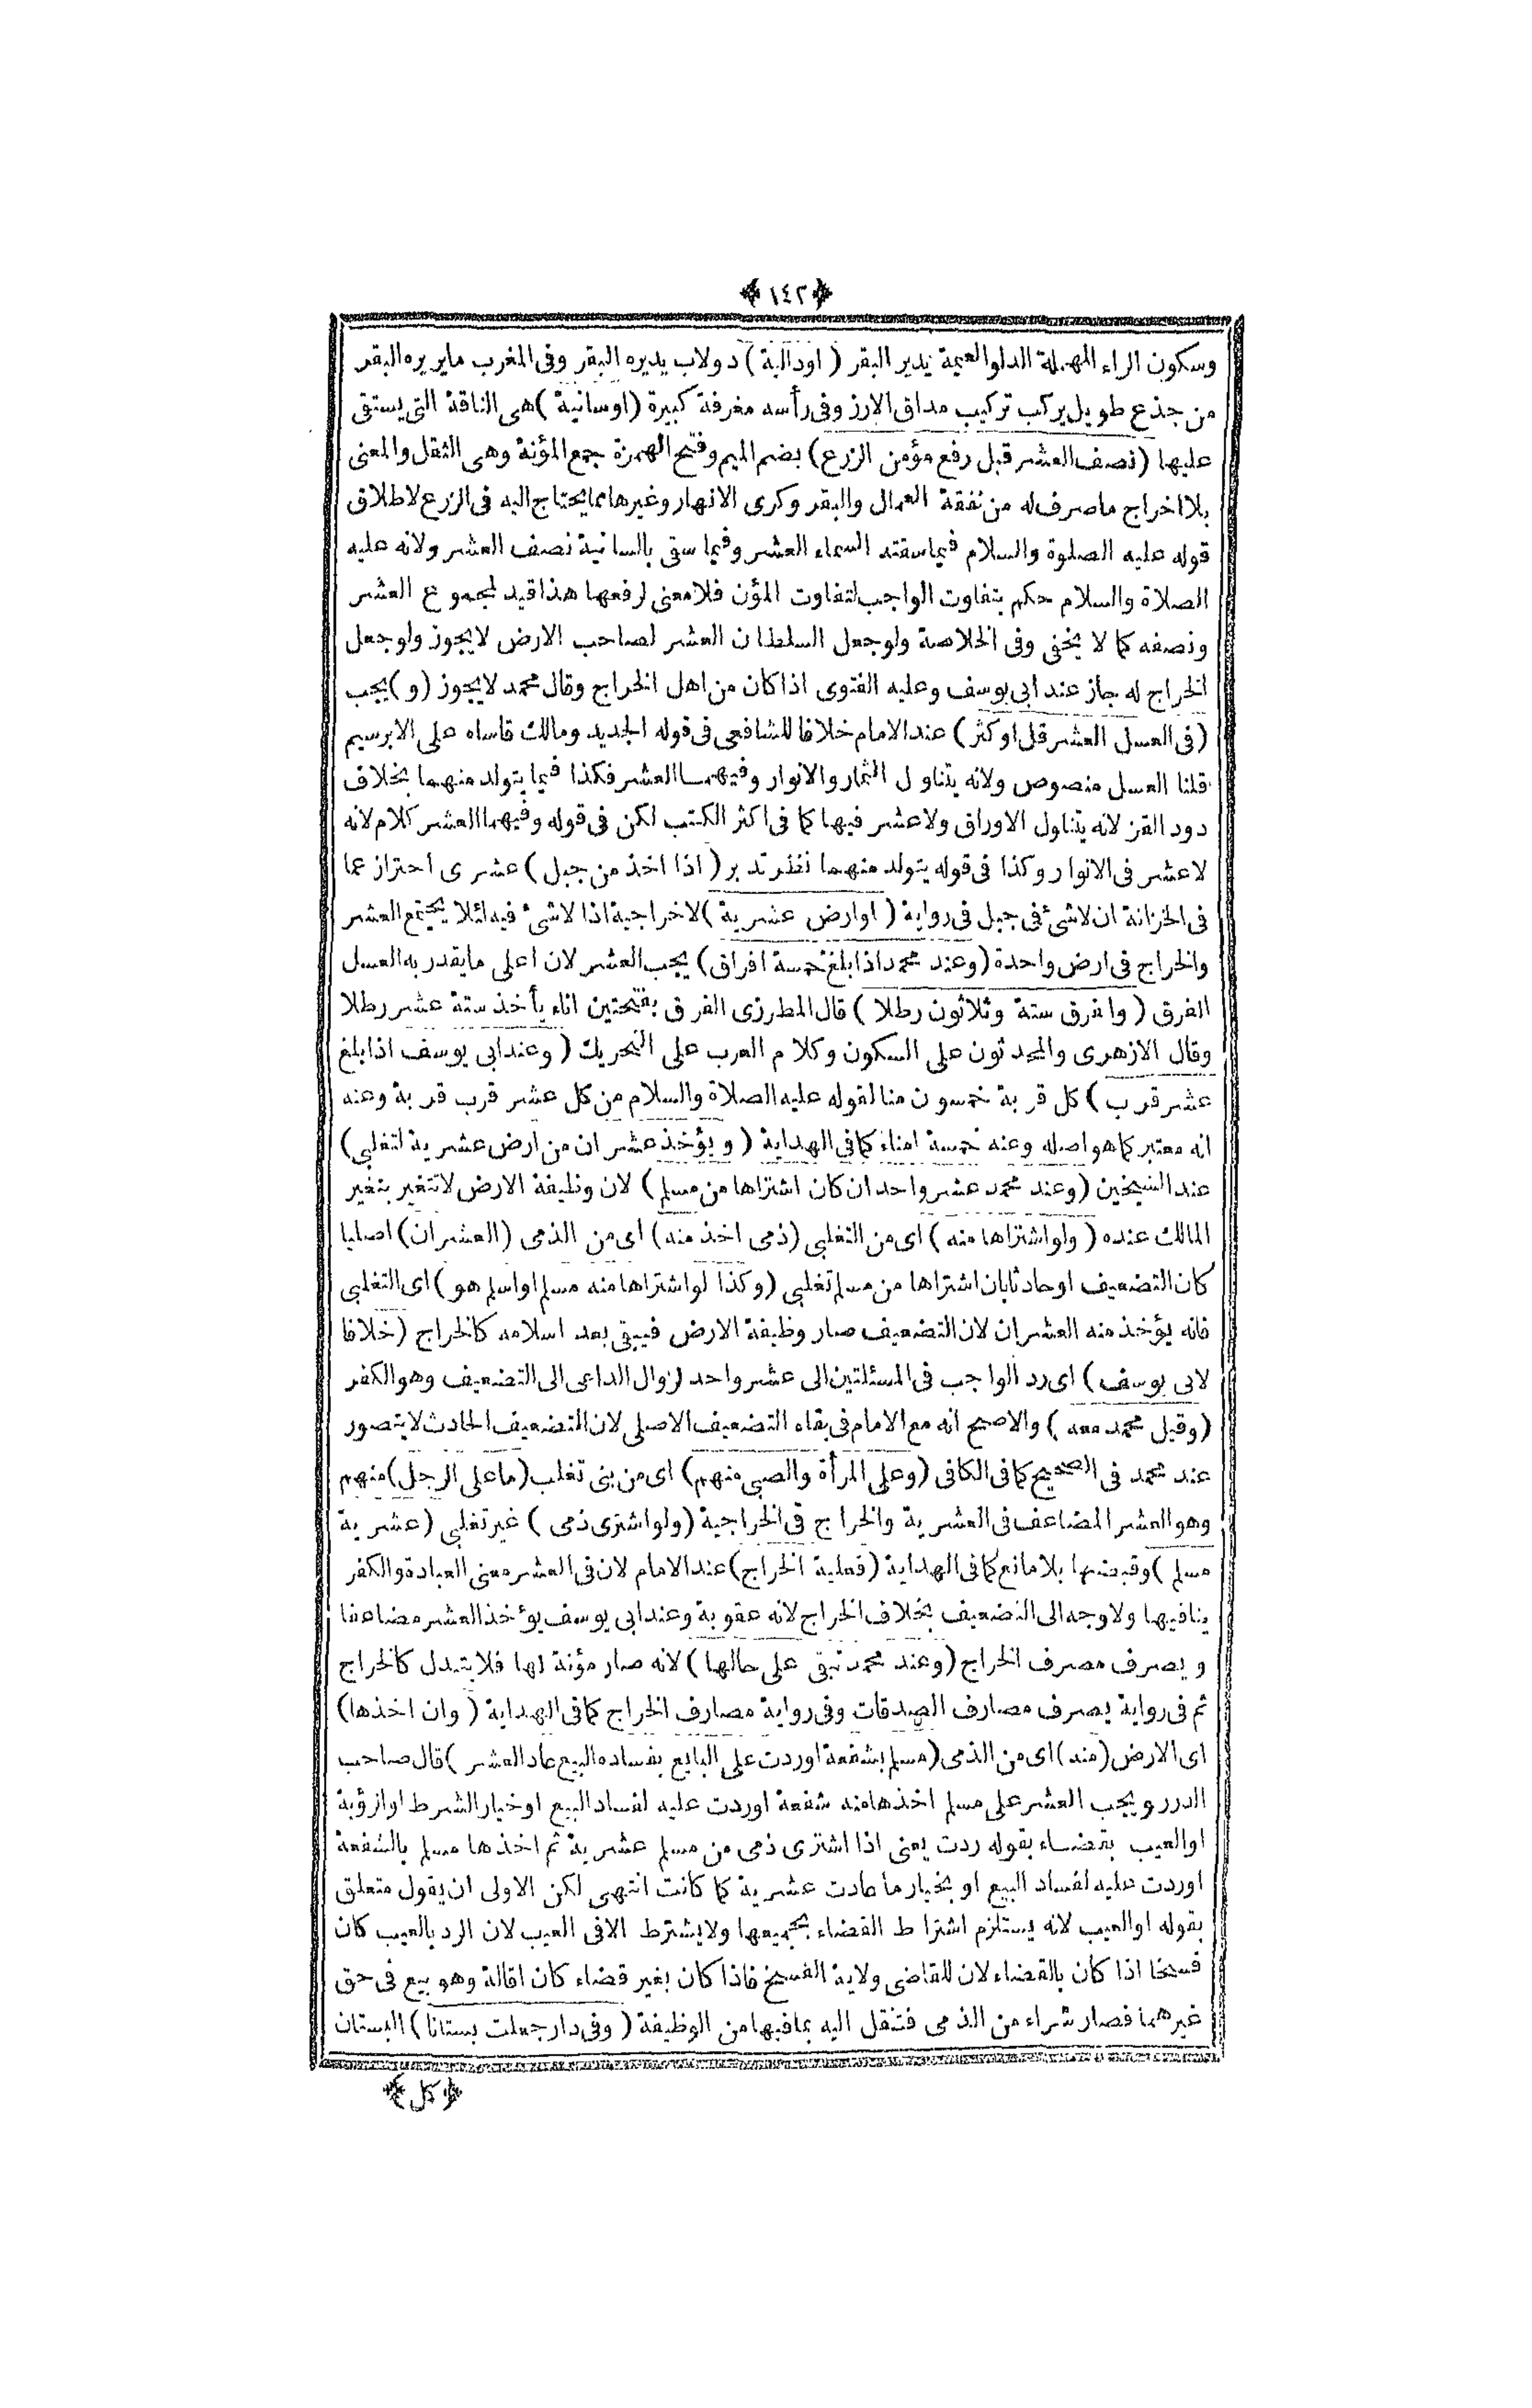 ﴿١٤٢﴾
وسكون الراء المهملة الدلو العظيمة يدير البقر ( او دالية ) دولاب يديره البقر وفى المغرب مايديره البقر
من جذع طويل يركب تركيب مداق الارز وفى رأسه مغرفة كبيرة ( او سانية ) هى الناقة التى يستقى
عليها ( نصف العشر قبل رفع مؤن الزرع ) بضم الميم وفتح الهمزة جمع المؤنة وهى الثقل والمعنى
بلا اخراج ماصرف له من نفقة العمال والبقر وكرى الانهار وغيرها مما يحتاج اليه فى الزرع لاطلاق
قوله عليه الصلوة والسلام فيما سقته السماء العشر وفيما سقى بالسانية نصف العشر ولانه عليه
الصلاة والسلام حكم بتفاوت الواجب لتفاوت المؤن فلا معنى لرفعها هذا قيد لمجموع العشر
ونصفه كما لا يخفى وفى الخلاصة ولوجعل السلطان العشر لصاحب الارض لايجوز ولوجعل
الخراج له جاز عند ابى يوسف وعليه الفتوى اذا كان من اهل الخراج وقال محمد لايجوز ( و ) يجب
( فى العسل العشر قل او كثر ) عند الامام خلافا للشافعى فى قوله الجديد ومالك قاساه على الابرسيم
قلنا العسل منصوص ولانه يتناول الثمار والانوار وفيهما العشر فكذا فيما يتولد منهما بخلاف
دود القز لانه يتناول الاوراق ولاعشر فيها كما فى اكثر الكتب لكن فى قوله وفيهما العشر كلام لانه
لاعشر فى الانوار وكذا فى قوله يتولد منهما نظر تدبر ( اذا اخذ من جبل ) عشرى احتراز عما
فى الخزانة ان لاشئ فى جبل فى رواية ( او ارض عشرية ) لاخراجية اذا لاشئ فيه لئلا يجتمع العشر
والخراج فى ارض واحدة ( وعند محمد اذا بلغ خمسة افراق ) يجب العشر لان اعلى مايقدر به العسل
الفرق ( والفرق ستة وثلاثون رطلا ) قال المطرزى الفرق بفتحتين اناء يأخذ ستة عشر رطلا
وقال الازهرى والمحدثون على السكون وكلام العرب على التحريك ( وعند ابى يوسف اذا بلغ
عشر قرب ) كل قربة خمسون منا لقوله عليه الصلاة والسلام من كل عشر قرب قربة وعنه
انه معتبر كما هو اصله وعنه خمسة امناء كما فى الهداية ( ويؤخذ عشران من ارض عشرية لتغلبى )
عند الشيخين ( وعند محمد عشر واحد ان كان اشتراها من مسلم ) لان وظيفة الارض لاتتغير بتغير
المالك عنده ( ولو اشتراها منه ) اى من التغلبى ( ذمى اخذ منه ) اى من الذمى ( العشران ) اصليا
كان التضعيف او حادثا بان اشتراها من مسلم تغلبى ( وكذا لو اشتراها منه مسلم او اسلم هو ) اى التغلبى
فانه يؤخذ منه العشران لان التضعيف صار وظيفة الارض فيبقى بعد اسلامه كالخراج ( خلافا
لابى يوسف ) اى رد الواجب فى المسئلتين الى عشر واحد لزوال الداعى الى التضعيف وهو الكفر
( وقيل محمد معه ) والاصح انه مع الامام فى بقاء التضعيف الاصلى لان التضعيف الحادث لايتصور
عند محمد فى الصحيح كما فى الكافى ( وعلى المرأة والصبى منهم ) اى من بنى تغلب ( ما على الرجل ) منهم
وهو العشر المضاعف فى العشرية والخراج فى الخراجية ( ولو اشترى ذمى ) غير تغلبى ( عشرية
مسلم ) وقبضها بلا مانع كما فى الهداية ( فعليه الخراج ) عند الامام لان فى العشر معنى العبادة والكفر
ينافيها ولا وجه الى التضعيف بخلاف الخراج لانه عقوبة وعند ابى يوسف يؤخذ العشر مضاعفا
ويصرف مصرف الخراج ( وعند محمد تبقى على حالها ) لانه صار مؤنة لها فلا يتبدل كالخراج
ثم فى رواية يصرف مصارف الصدقات وفى رواية مصارف الخراج كما فى الهداية ( وان اخذها )
اى الارض ( منه ) اى من الذمى ( مسلم بشفعة او ردت على البايع بفساده البيع عاد العشر ) قال صاحب
الدرر ويجب العشر على مسلم اخذها منه شفعة او ردت عليه لفساد البيع او خيار الشرط او الرؤية
او العيب بقضاء بقوله ردت يعنى اذا اشترى ذمى من مسلم عشرية ثم اخذها مسلم بالشفعة
او ردت عليه لفساد البيع او بخيار ما عادت عشرية كما كانت انتهى لكن الاولى ان يقول متعلق
بقوله او العيب لانه يستلزم اشتراط القضاء بجميعها ولايشترط الا فى العيب لان الرد بالعيب كان
فسخا اذا كان بالقضاء لان للقاضى ولاية الفسخ فاذا كان بغير قضاء كان اقالة وهو بيع فى حق
غيرهما فصار شراء من الذمى فتنقل اليه بمافيها من الوظيفة ( وفى دار جعلت بستانا ) البستان
﴿ كل ﴾